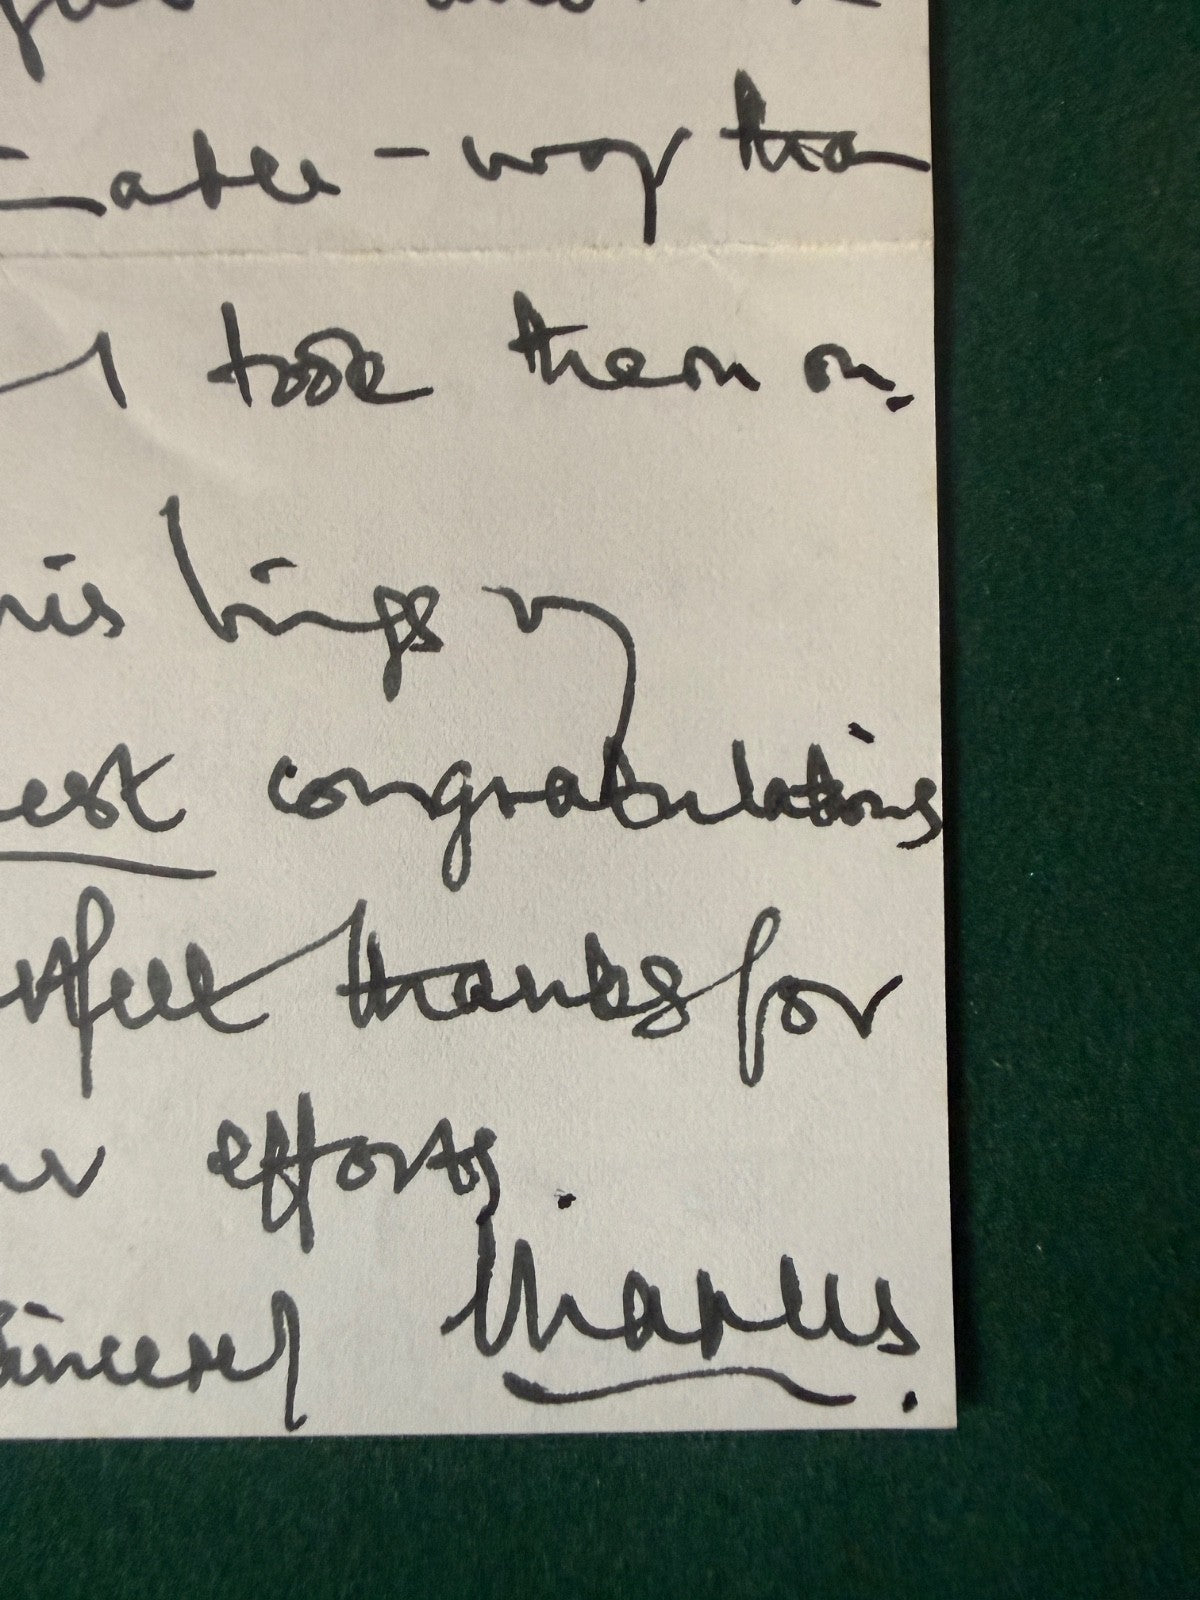 -able - way tha
I took them on.
his brings my
est congratulations
rtful thanks for
ur efforts.
Sincerely Charles.